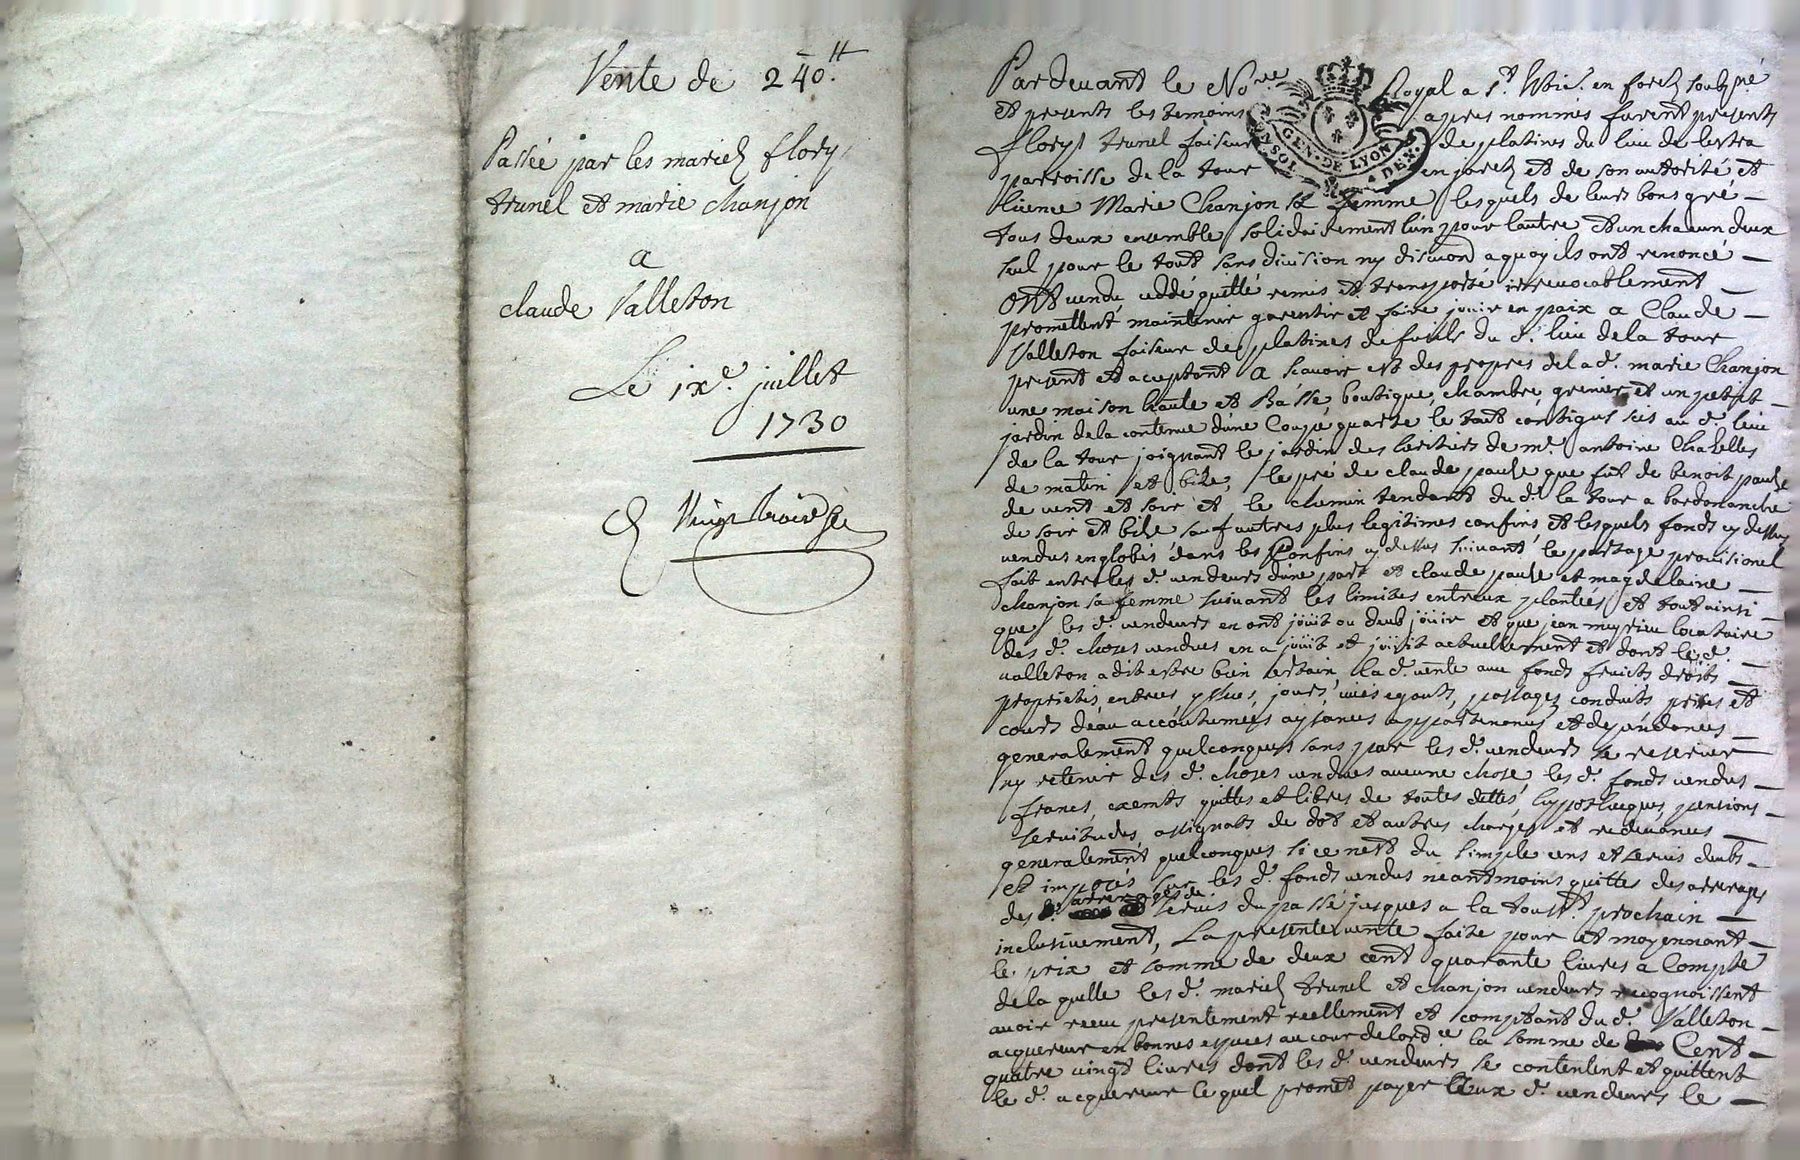 Vente de 240.ᵗᵗ
Passée par les mariez flory
trunel et marie chanjon
a
claude Valleton
Le ixe. juillet
1730
Pardevant le Nore Royal a St. en forest soubzné
et presents les temoins apres nommés furent presents
flory trunel faiseur de platines du lieu de lestra
GEN. DE LYON
parroisse de la tour en forest et de son autorité et
licence Marie Chanjon sa femme lesquels de leurs bons gré
tous deux ensemble solidairement l'un pour lautre et un chacun deux
seul pour le tout sans division ny discution a quoy ils ont renoncé
ont vendu ceddé quitté remis et transporté irrevocablement
promettent maintenir garentir et faire jouir en paix a Claude
Valleton faiseur de platines de fusils du d. lieu de la tour
present et acceptant a scavoir est des propres de la d. marie Chanjon
une maison haute et Basse, boutique, chambre, grenier et un petit
jardin de la contenue d'une Coupe quarte le tout contigus scis au d. lieu
de la tour joignant le jardin des heritiers de mr. antoine Chapelles
de matin et bize, le pré de claude pause que fut de benoit pause
de vent et soir et le chemin tendant du d. la tour a
de soir et bize sauf autres plus legitimes confins et lesquels fonds cy dessus
vendus englobés dans les Confins cy dessus suivant le partage provisionel
fait entre les d. vendeurs d'une part et claude pause et magdelaine
chanjon sa femme suivant les limites entreux plantées et tout ainsi
que les d. vendeurs en ont jouit ou deub jouir et que jean meyrieu locataire
des d. choses vendues en a jouit et jouit actuellement et dont le d.
valleton a dit estre bien certain, la d. vente avec fonds fruits droits
proprietés, entrées ysues, jours, vües egouts, passages conduits prises et
cours d'eau accoutumées aysances appartenances et dependances
generalement quelconques sans par les d. vendeurs se reserver
ny retenir des d. choses vendues aucune chose, les d. fonds vendus
francs, exempts quittes et libres de toutes dettes, hypotheques, pensions
servitudes, assignats de dot et autres charges et redevances
generalement quelconques si ce nest du simple cens et servis deubs
et imposés sur les d. fonds vendus neantmoins quittes des arrerages
des d. arrerages de servis du passé jusques a la tousst. prochain
inclusivement, La presente vente faite pour et moyennant
le prix et somme de deux cent quarante livres a Compte
de la quelle les d. mariez trunel et chanjon vendeurs recognoissent
avoir receu presentement reellement et comptant du d. Valleton
acquereur en bonnes especes au cour de lordce la somme de Cent
quatre vingt livres dont les d. vendeurs se contentent et quittent
le d. acquereur lequel promet payer aux d. vendeurs le